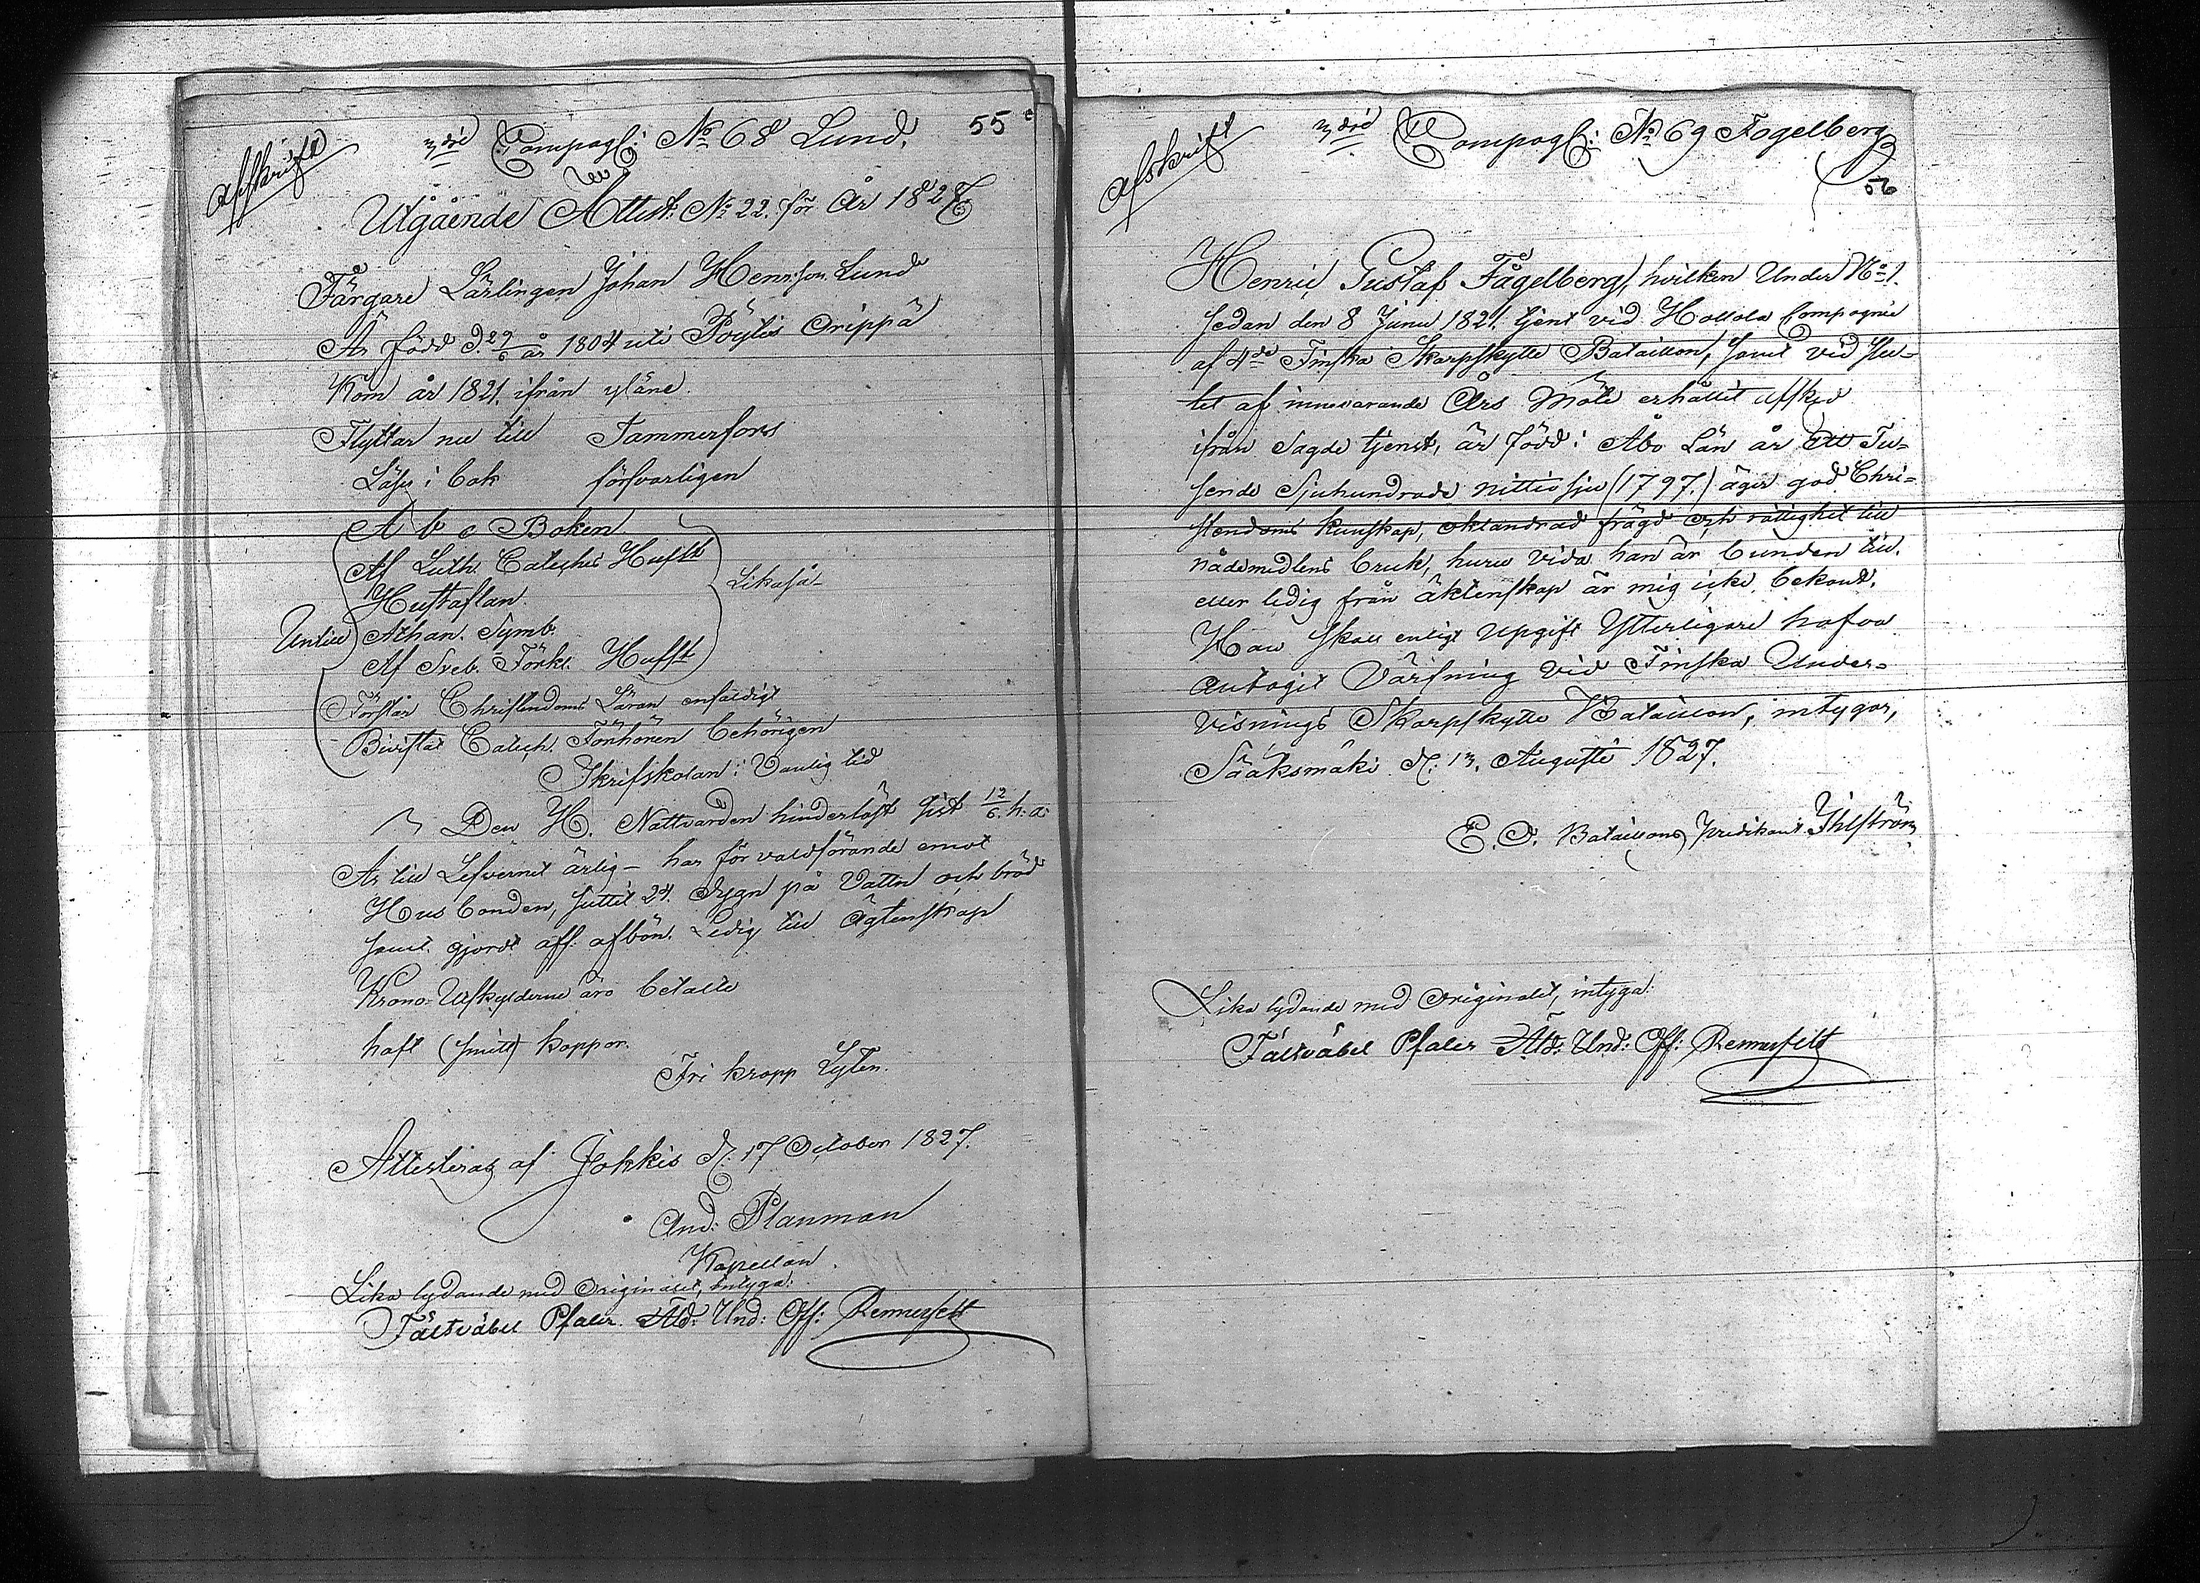 Afskrift
3dje Compagℓ: No 68 Lund.
55
Utgående Attest: No 22. för År 1827
Färgare Lärlingen Johan Henr:son Lund
Är född d. 29/6 år 1804 uti Pöytis Orippä
Kom år 1821. ifrån yläne
Flyttar nu till Tammerfors
Läser i bok försvarligen
A b c Boken
Af Luth. Cateches Hufst
Hustaflan
Likaså
Untill Athan. Symb.
Af Sveb. Förkl. Hufst
Förstår Christendoms Läran enfaldigt
Bivistat Catech. Förhören behörigen
Skriftskolan i Vanlig tid
Den H. Nattvarden hinderlöst sist 12/6 h. a:
Är till Lefvernet ärlig – har för valdförande emot
Husbonden, suttit 24. dygn på Vatten och bröd
samt gjordt aff: afbön. Ledig till Ägtenskap
Krono-Utskylderne äro betalte
haft (smitt) koppor.
Fri kropp Lyten.
Attesteras af Jokkis d. 17 October 1827.
And: Planman
Kapellan.
Lika lydande med Originalet, intyga:
Fältväbel Pfaler. Äld: Und: Off: Rennerfelt
Afskrift
3dje Compagℓ: No 69 Fogelberg
56
Henric Gustaf Fågelberg, hvilken Under No 1.
sedan den 8 Junii 1821. tjent vid Hollola Compagnie
af 4de Finska Skarpskytte Bataillon, samt vid slu-
tet af innevarande Års Möte erhållit afsked
ifrån Sagde tjenst, är född i Åbo Län år Ett Tu-
sende Sjuhundrade nittiosju (1797.) äger god Chri-
stendoms kunskap, oklandrad frägd och rättighet till
nådemedlens bruk, huru vida han är bunden till.
eller ledig från äktenskap är mig icke bekant.
Han skall enligt Upgift Ytterligare hafva
antagit Värfning vid Finska Under-
visnings Skarpskytte Bataillon, intygar,
Sääksmäki d. 13. Augusti 1827.
E. O. Bataillons Predikant Ihlström
Lika lydande med Originalet, intyga:
Fältväbel Pfaler Äld: Und: Off: Rennerfelt